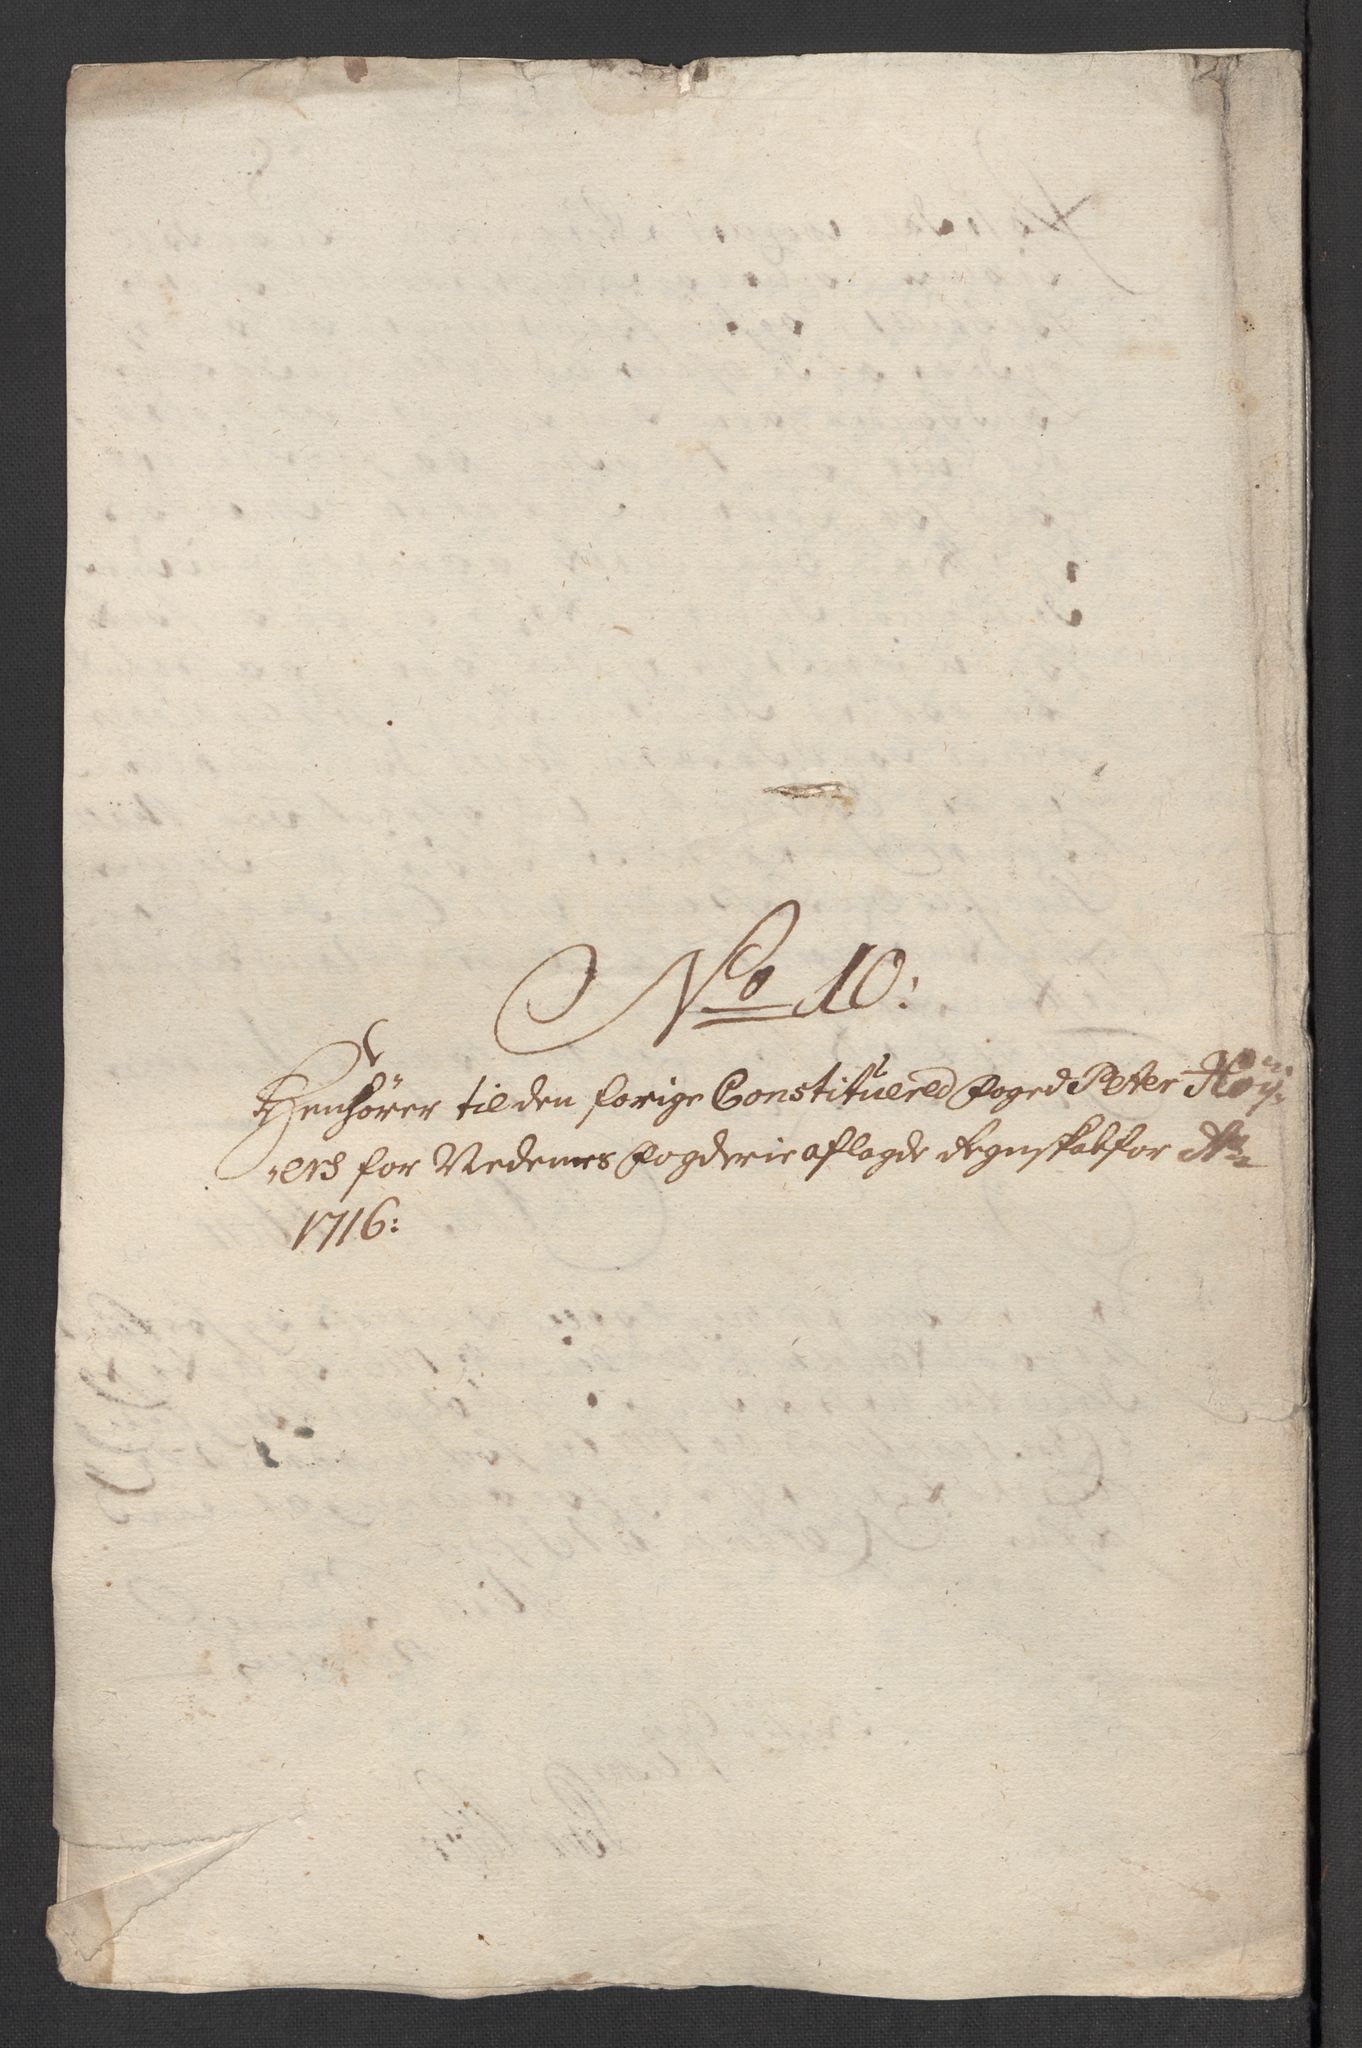 No 10:
Henhörer til den forige Constituered Foged Peter Höy-
ers for Nedenes Fogderie aflagde Regnskab for Ao
1716: